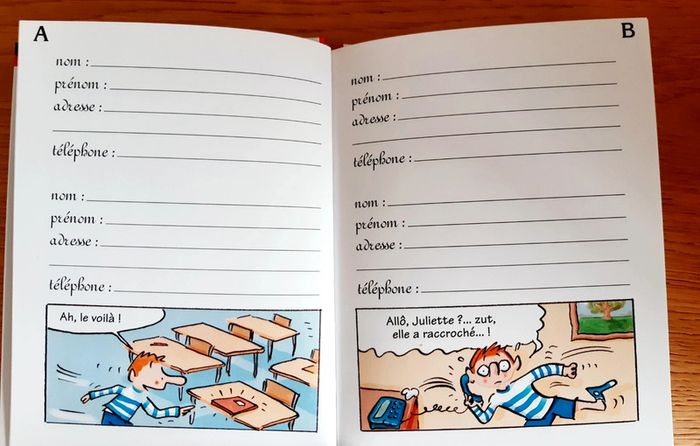 A
nom :
prénom :
adresse :
téléphone :
nom :
prénom :
adresse :
téléphone :
Ah, le voilà !
B
nom :
prénom :
adresse :
téléphone :
nom :
prénom :
adresse :
téléphone :
Allô, Juliette ?... zut,
elle a raccroché... !